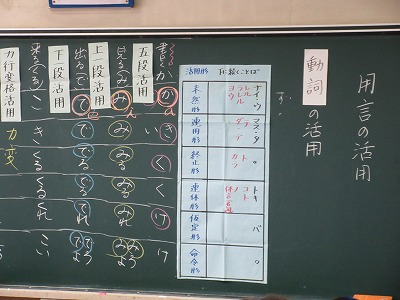 用言の活用
動詞の活用
活用形
下に続くことば
未然形
ナイ・ウ
ラレル
ヨウ
連用形
マス・タ
ダ
テ
終止形
。
トカラ
連体形
トキ
コト
ノ
仮定形
バ
命令形
。
五段活用
書く
か
か
い き
く
く
け
け
上一段活用
見る
み
み
みる
みる
みれ
みろ
みよ
下一段活用
出る
で
で
でる
でる
でれ
でろ
でよ
カ行変格活用
来る
こ
き
くる
くる
くれ
こい
カ変